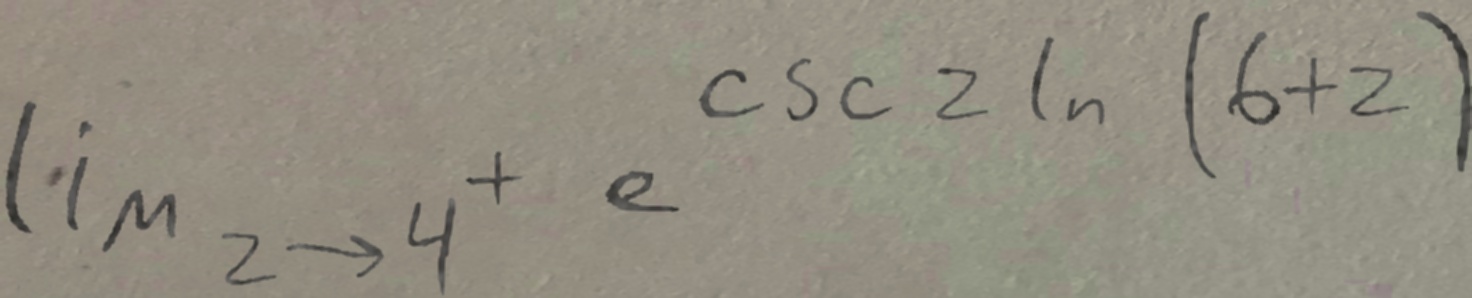 lim z→4⁺ e^{csc z ln (6+z)}